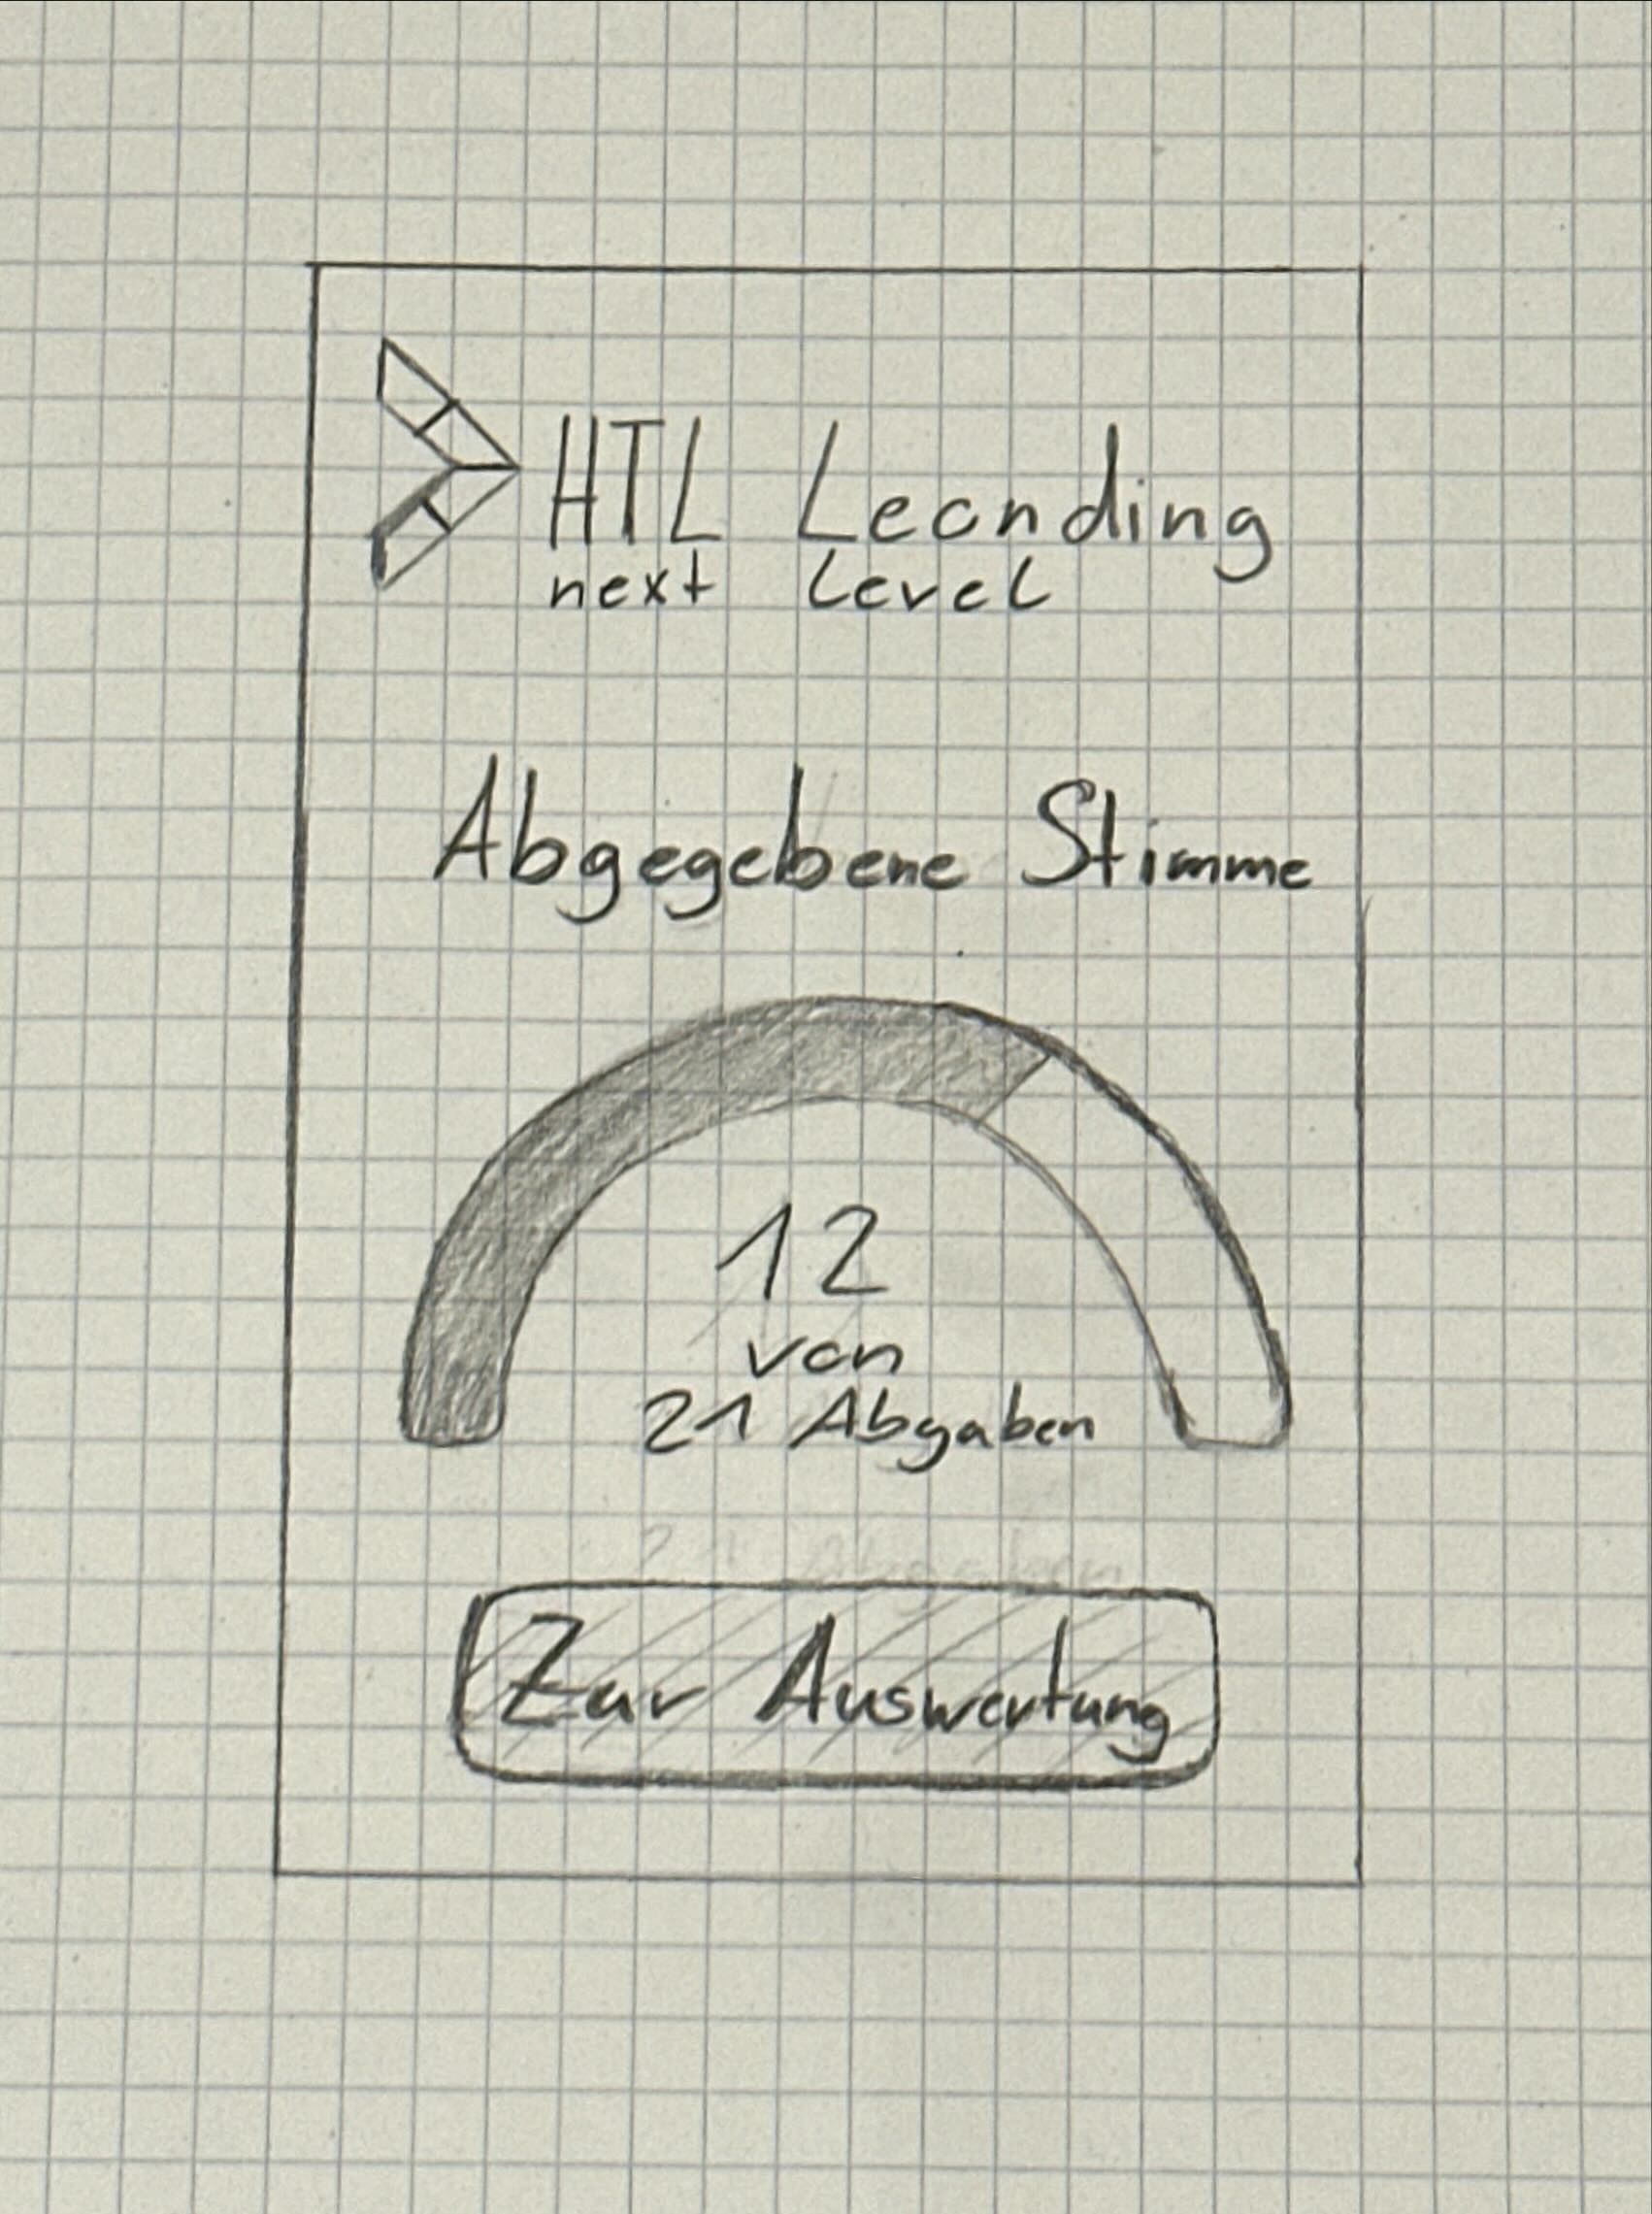 HTL Leonding
next level
Abgegebene Stimme
12
von
21 Abgaben
21 Abgaben
Zur Auswertung